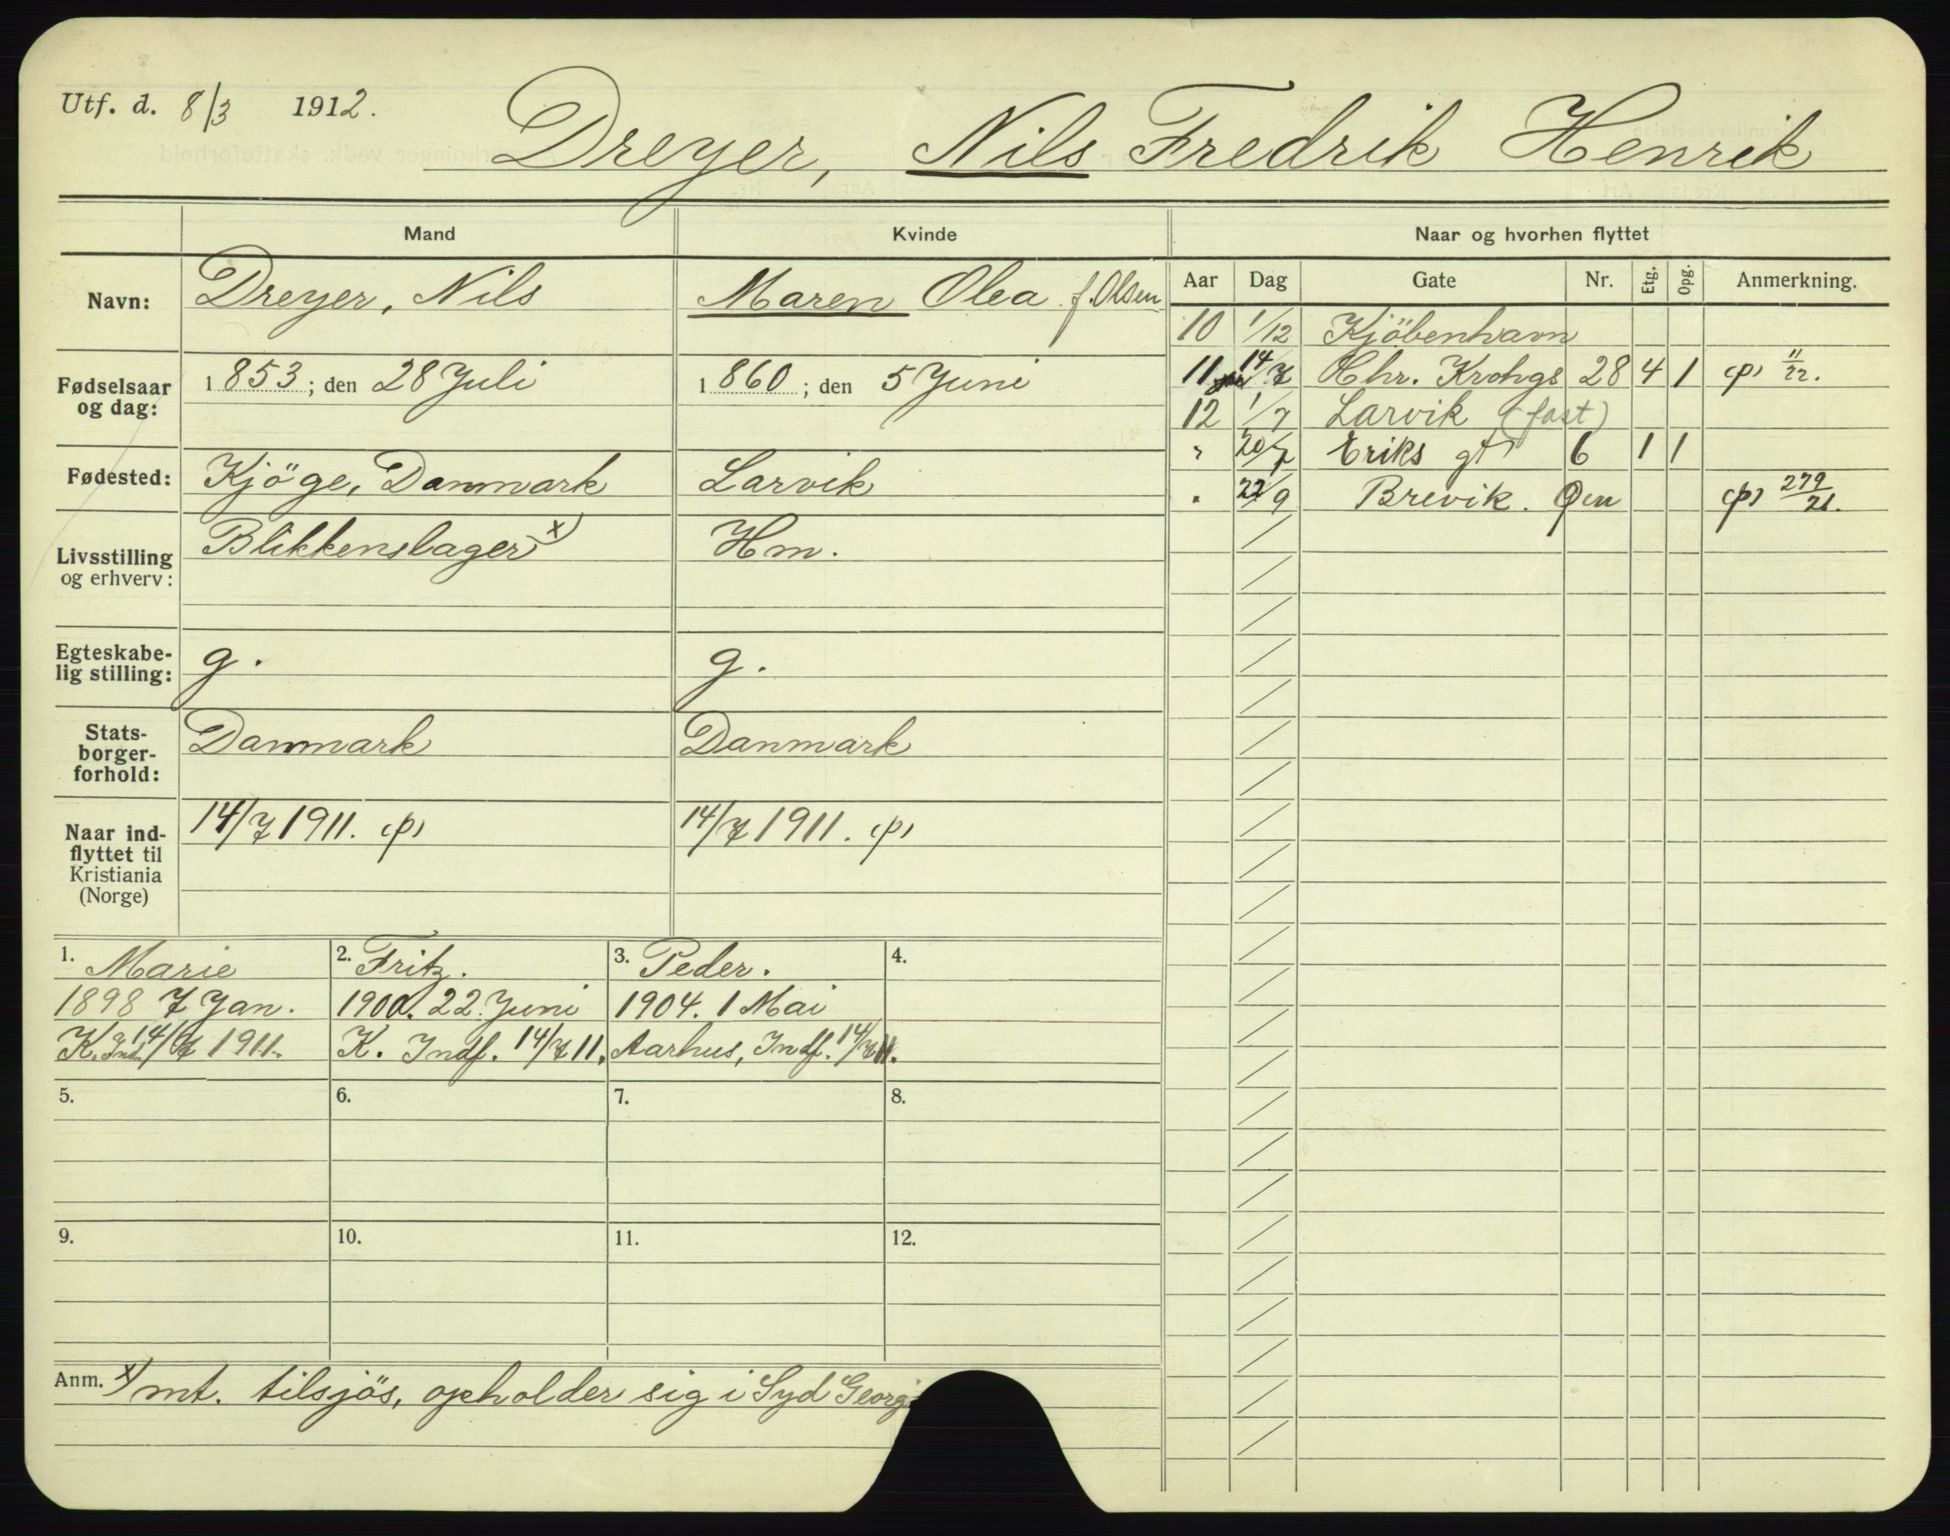 Utf. d. 8/3 1912.
Dreyer, Nils Fredrik Henrik
Mand Kvinde
Navn: Dreyer, Nils Maren Olea f. Olsen
Fødselsaar og dag: 1853; den 28 Juli 1860; den 5 Juni
Fødested: Kjöge, Danmark Larvik
Livsstilling og erhverv: Blikkenslager x) Hm.
Egteskabelig stilling: g. g.
Statsborgerforhold: Danmark Danmark
Naar indflyttet til Kristiania (Norge) 14/7 1911. 14/7 1911.
1. Marie
1898 7 Jan.
K. Ind. 14/7 1911.
2. Fritz.
1900. 22. Juni
K. Indf. 14/7 11.
3. Peder.
1904. 1 Mai
Aarhus, Indf. 14/7 11.
4.
5. 6. 7. 8.
9. 10. 11. 12.
Anm. x) mt. tilsjös, opholder sig i Syd Georgi
Naar og hvorhen flyttet
Aar Dag Gate Nr. Etg. Opg. Anmerkning.
10 1/12 Kjöbenhavn
11 14/7 Chr. Krohgs 28 4 1 11/22.
12 1/7 Larvik (fast)
" 20/7 Eriks gt 6 1 1
" 22/9 Brevik. 279/21.